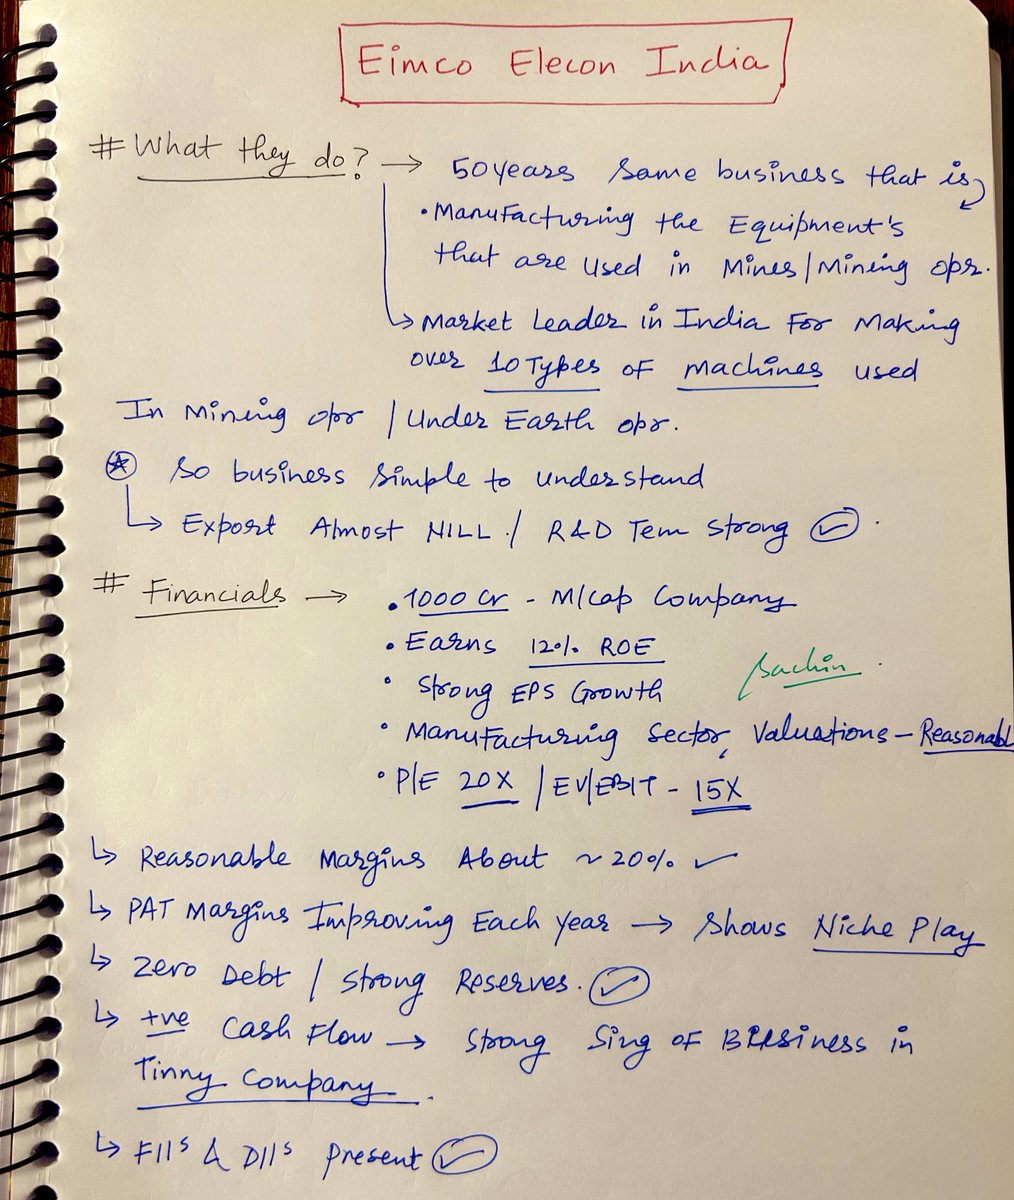 Eimco Elecon India
# What they do? → 50years same business that is
• Manufacturing the Equipment's
that are used in Mines/Mining opr.
↳ Market Leader in India For Making
over 10 Types of machines used
In Mining opr / Under Earth opr.
so business simple to understand
↳ Export Almost NILL / R&D Tem strong
# Financials → • 1000 Cr - M/Cap Company
• Earns 12% ROE
Sachin
• Strong EPS Growth
• Manufacturing sector, Valuations - Reasonabl
• P/E 20X / EV/EBIT - 15X
↳ Reasonable Margins About ~20% ✓
↳ PAT Margins Improving Each Year → shows Niche Play
↳ Zero Debt / Strong Reserves.
↳ +ve Cash Flow → Strong Sing of Bussiness in
Tinny Company.
↳ FIIs & DIIs present